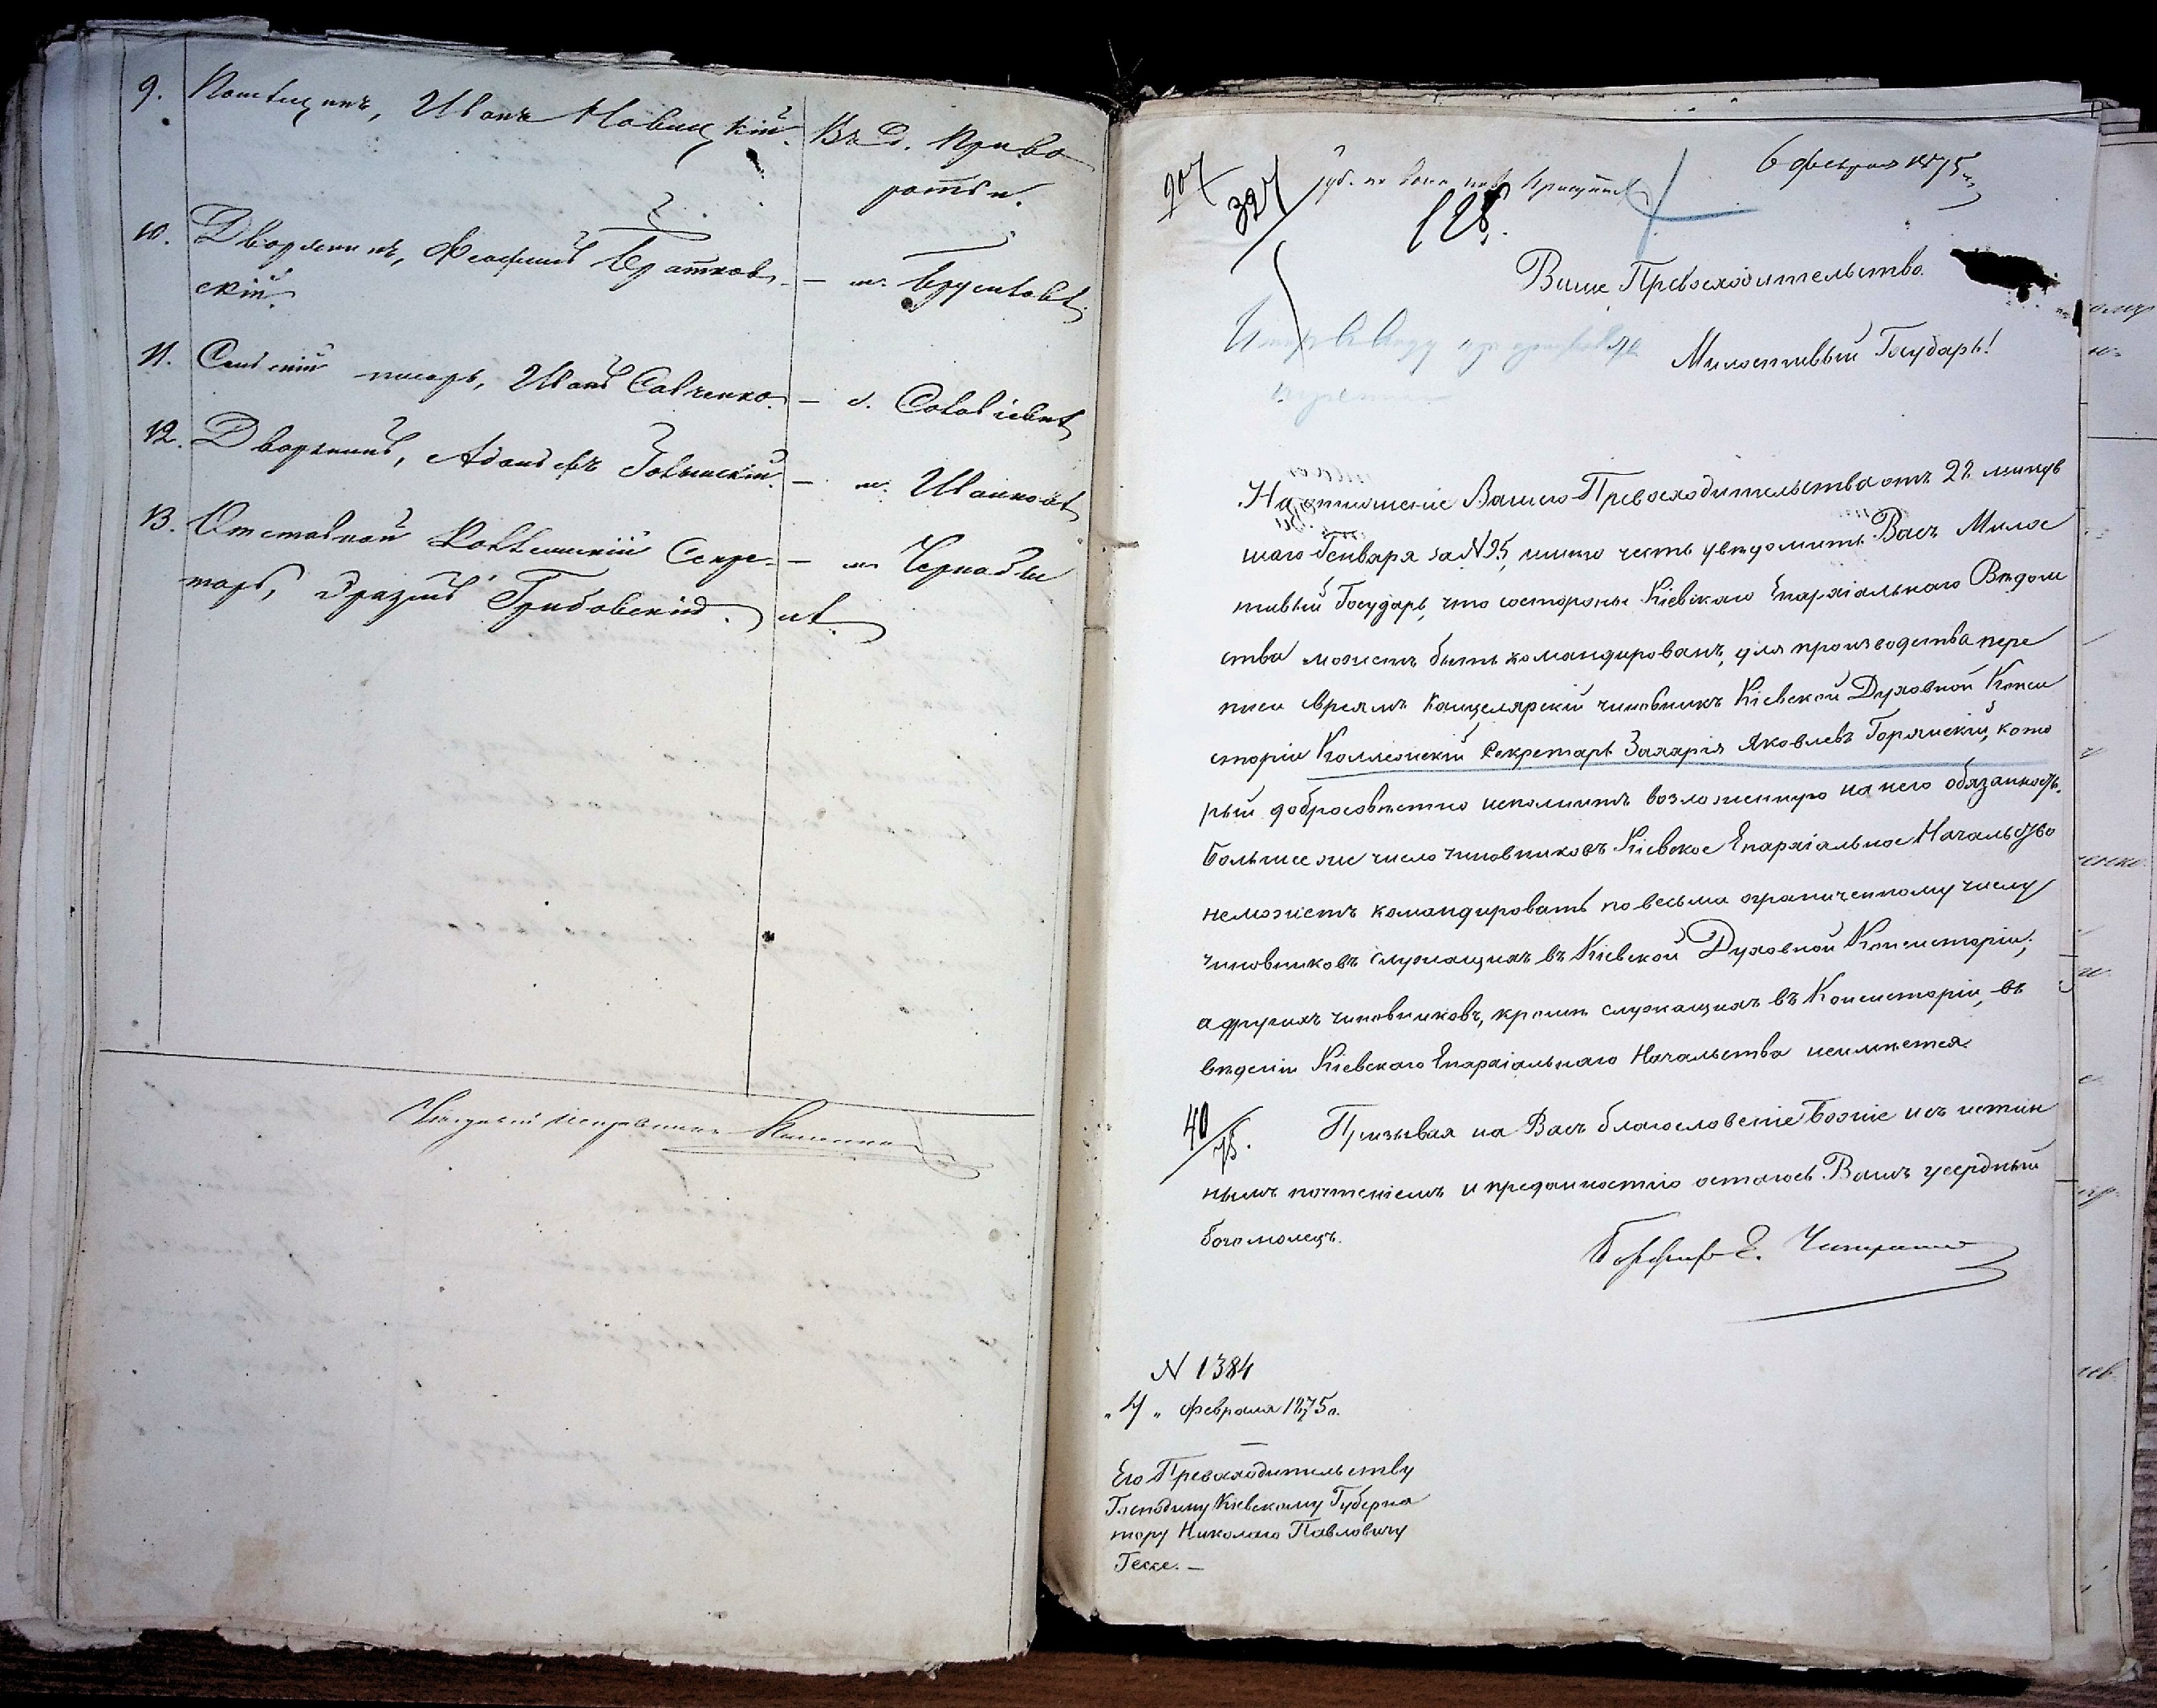 9. Помѣщикъ, Иванъ Новицкій. Въ д. Приво
ротьи.
10. Дворянинъ, Братков- — м. Брусиловѣ
скій.
11. Сельскій писарь, Иванъ Савченко. — с. Соловіевкѣ
12. Дворянинъ, — м. Иванковѣ
13. Отставной Коллежскій Секре- — м. Чернобы
тарь, Грибовскій. лѣ.
Исправникъ
6 февраля 1875 г.
207
327
128.
Ваше Превосходительство
Милостивый Государь!
На отношеніе Вашего Превосходительства отъ 22 минув
шаго Генваря за N 95, имѣю честь увѣдомить Васъ Милос
тивый Государь, что состороны Кіевскаго Епархіальнаго Вѣдом
ства можетъ быть командированъ, для производства пере
писи евреямъ Канцелярскій чиновникъ Кіевской Духовной Конси
сторіи Коллежскій Секретарь Захарія Яковлевъ Горянскій, кото
рый добросовѣстно исполнитъ возложенную на него обязанность.
Большее же число чиновниковъ Кіевское Епархіальное Начальство
неможетъ командировать по весьма ограниченному числу
чиновниковъ служащихъ въ Кіевской Духовной Консисторіи;
а другихъ чиновниковъ, кромѣ служащихъ въ Консисторіи, въ
вѣденіи Кіевскаго Епархіальнаго Начальства неимѣется.
40/75. Призывая на Васъ благословеніе Божіе исъ истин
нымъ почтеніемъ и преданностію остаюсь Вашъ усердный
богомолецъ.
Порфирій Е. Чигиринскій
N 1384
„4„ Февраля 1875 г.
Его Превосходительству
Господину Кіевскому Губерна
тору Николаю Павловичу
Гессе. —